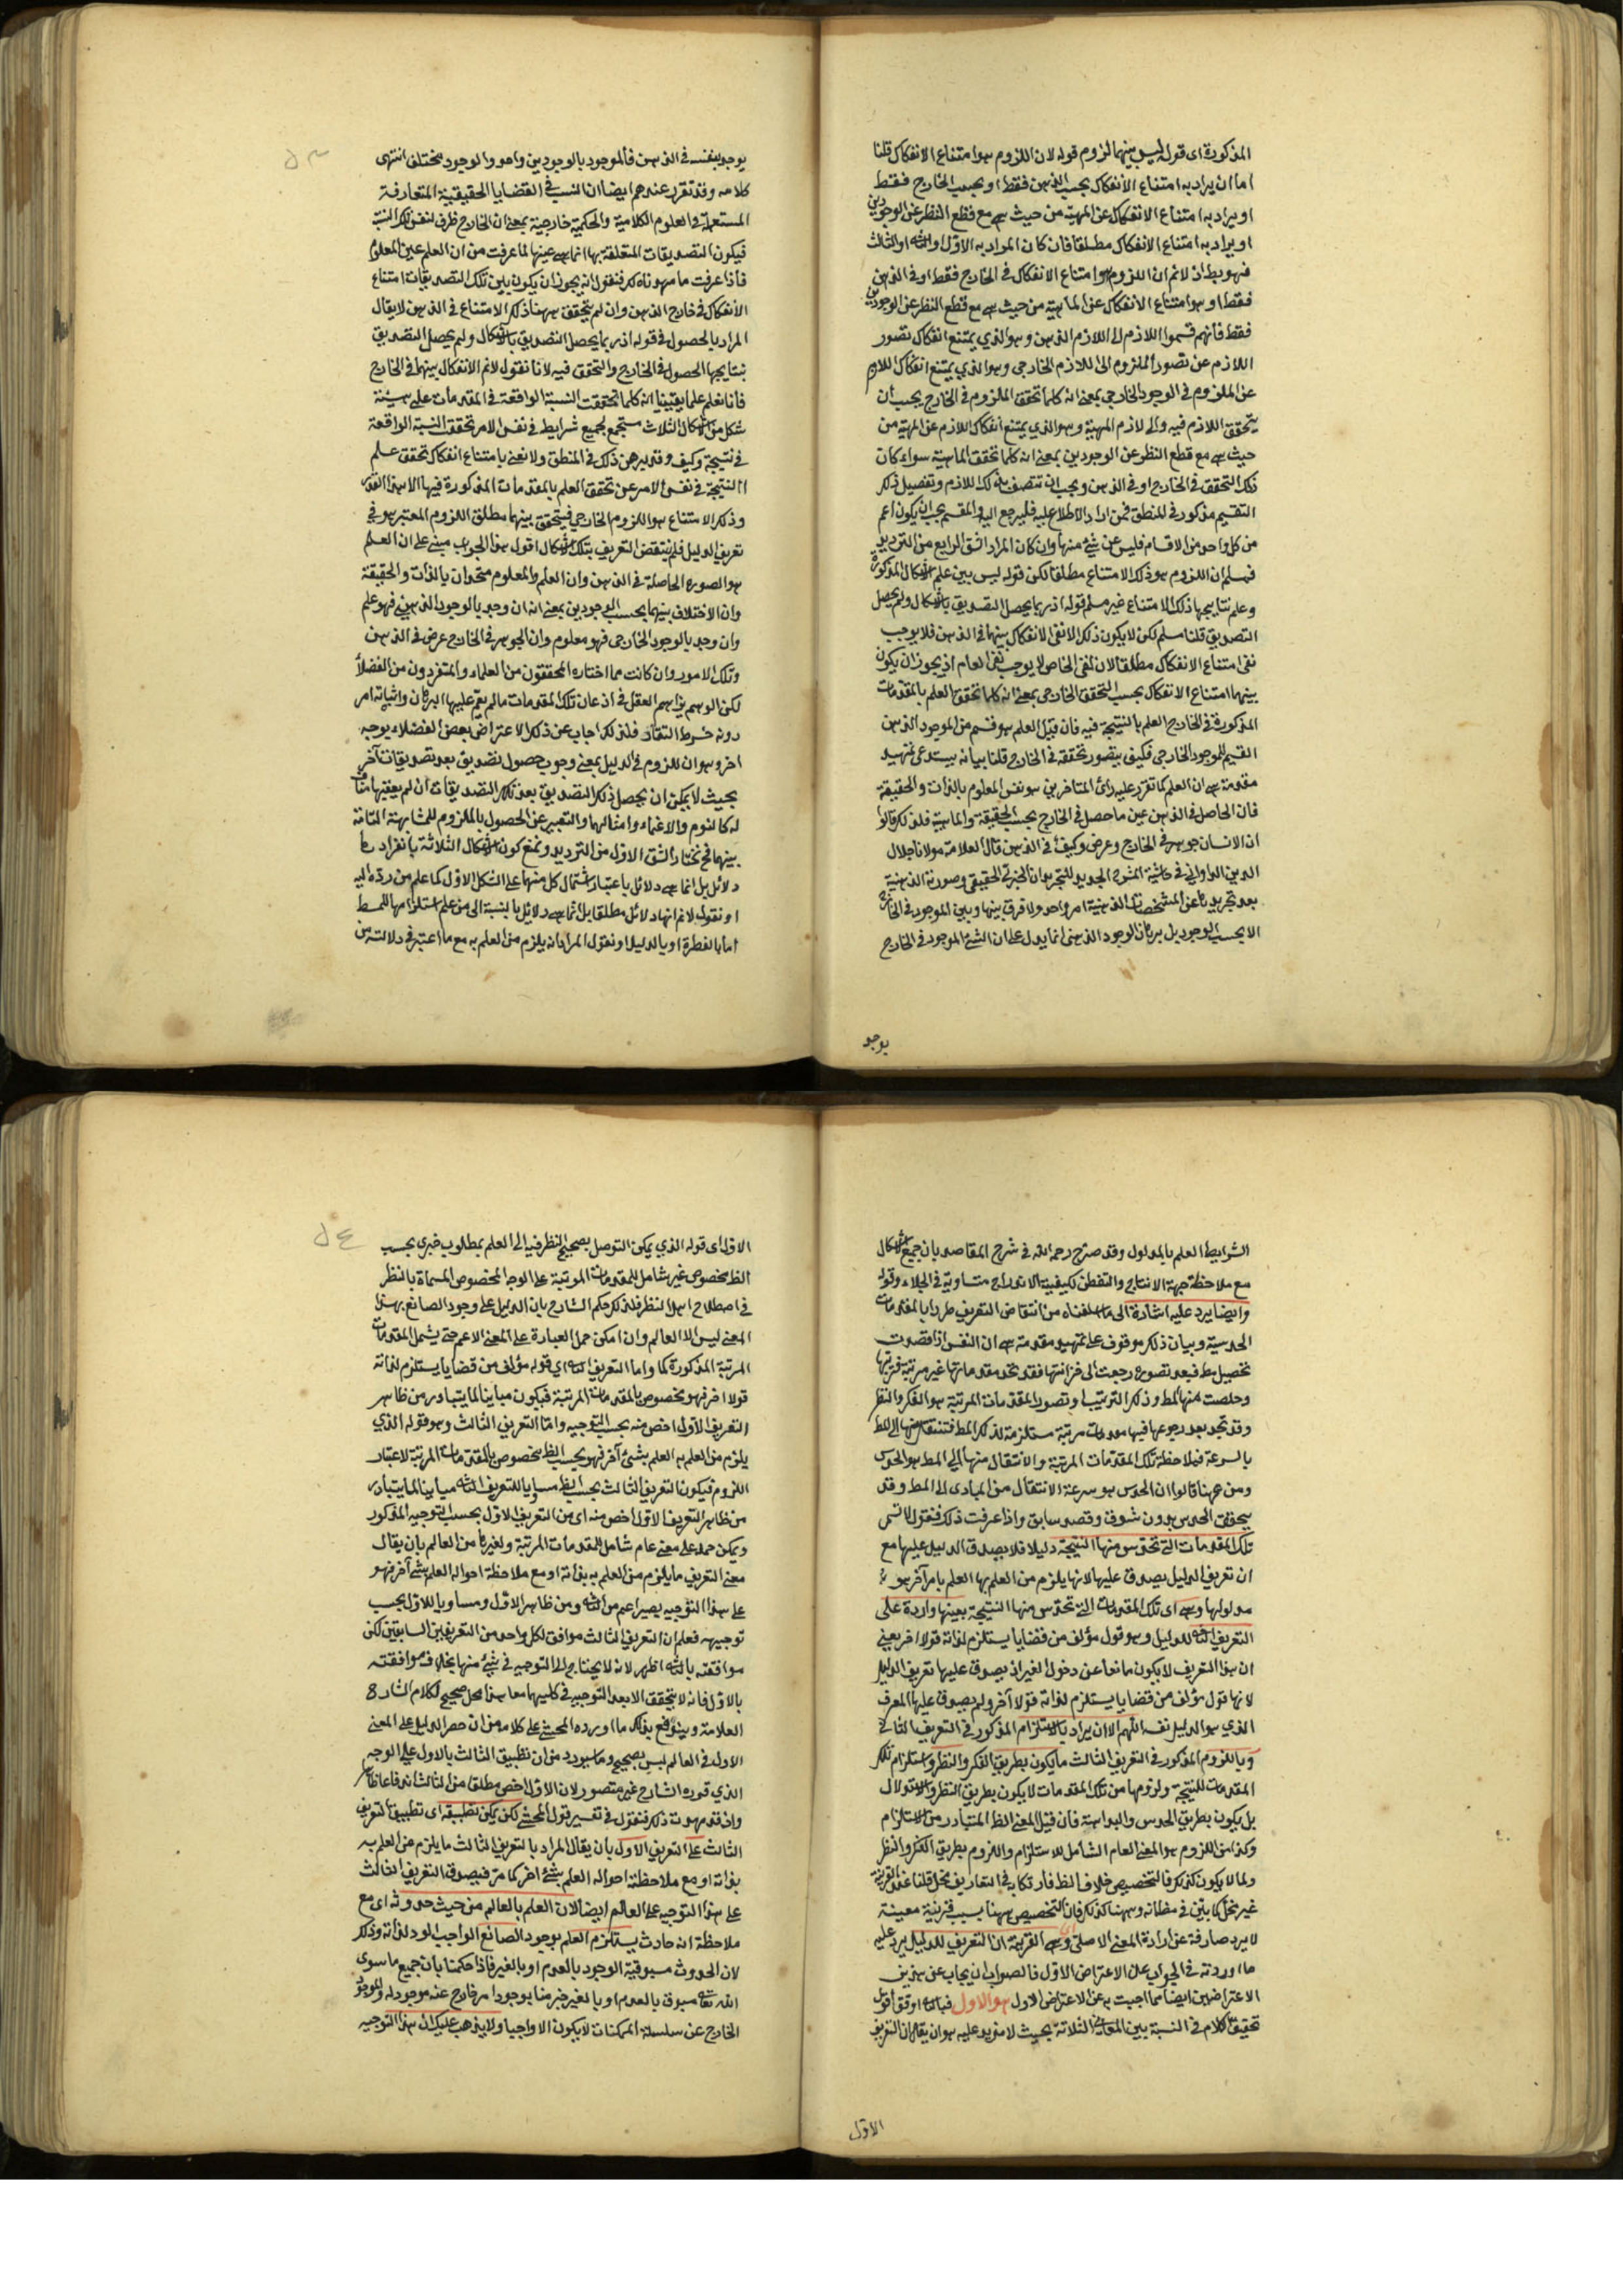 المذكورة اى قوله ليس بينهما لزوم قوله لان اللزوم هو امتناع الانفكاك قلنا
اما ان يراد به امتناع الانفكاك بحسب الذهن فقط او بحسب الخارج فقط
او يراد به امتناع الانفكاك عن المهية من حيث هى مع قطع النظر عن الوجودين
او يراد به امتناع الانفكاك مطلقا فان كان المراد به الاول او الثانى او الثالث
فهو بط اذ لانم ان اللزوم هو امتناع الانفكاك فى الخارج فقط او فى الذهن
فقط او هو امتناع الانفكاك عن الماهية من حيث هى مع قطع النظر عن الوجودين
فقط فانهم قسموا اللازم الى اللازم الذهن وهو الذي يمتنع انفكاك تصور
اللازم عن تصور الملزوم والى اللازم الخارجى وهو الذي يمتنع انفكاك اللازم
عن الملزوم فى الوجود الخارجى بمعنى انه كلما تحقق الملزوم فى الخارج يجب أن
يتحقق اللازم فيه والى لازم المهية وهو الذي يمتنع انفكاك اللازم عن المهية من
حيث هى مع قطع النظر عن الوجودين بمعنى انه كلما تحقق الماهية سواء كان
ذلك التحقق فى الخارج او فى الذهن ويجب ان تتصف بذلك اللازم وتفصيل ذلك
التقسيم مذكور فى المنطق فمن اراد الاطلاع عليه فليرجع اليه والمقسم يجب ان يكون اعم
من كل واحد من الاقسام فليس عن شئ منها وان كان المراد الشق الرابع من الترديد
فمسلم ان اللزوم هو ذلك الامتناع مطلقا لكن قوله ليس بين علم الاشكال المذكورة
وعلم نتايجها ذلك الامتناع غير مسلم قوله اذ ربما يحصل التصديق بالاشكال ولم يحصل
التصديق قلنا مسلم لكن لا يكون ذلك الا نفى الانفكاك بينهما فى الذهن فلا يوجب
نفى امتناع الانفكاك مطلقا لان نفى الخاص لا يوجب نفى العام اذ يجوز ان يكون
بينهما امتناع الانفكاك بحسب التحقق الخارجى بمعنى انه كلما تحقق العلم بالمقدمات
المذكورة فى الخارج العلم بالنتيجة فيه فان قيل العلم هو قسم من الموجود الذهن
القسيم للموجود الخارجى فكيف يتصور تحققه فى الخارج قلنا بيانه يستدعى تمهيد
مقدمة هى ان العلم كما تقرر عليه رأى المتاخرين هو نفس المعلوم بالذات والحقيقة
فان الحاصل فى الذهن عين ما حصل فى الخارج بحسب الحقيقة والماهية فلذلك قالوا
ان الانسان جوهر فى الخارج وعرض وكيف فى الذهن قال العلامة مولانا جلال
الدين الدوانى فى حاشية الشرح الجديد للتجريد ان الجزئى الحقيقى وصورته الذهنية
بعد تجريدها عن المشخصات الذهنية امر واحد ولا فرق بينها وبين الموجود فى الخارج
الا بحسب الوجود بل برهان الوجود الذهنى انما يدل على ان الشئ الموجود فى الخارج
يوجد
يوجد بنفسه فى الذهن فالموجود بالوجودين واحد والوجود مختلف انتهى
كلامه وقد تقرر عندهم ايضا ان النسب فى القضايا الحقيقية المتعارفة
المستعملة فى العلوم الكلامية والحكمية خارجية بمعنى ان الخارج ظرف لنفس تلك النسبة
فيكون التصديقات المتعلقة بها انما هى عينها لما عرفت من ان العلم عين المعلوم
فاذا عرفت ما مهدناه لك فنقول انه يجوز ان يكون بين تلك التصديقات امتناع
الانفكاك فى خارج الذهن وان لم يتحقق ههنا ذلك الامتناع فى الذهن لا يقال
المراد بالحصول فى قوله اذ ربما يحصل التصديق بالاشكال ولم يحصل التصديق
بنتايجها الحصول فى الخارج والتحقق فيه لانا نقول لانم الانفكاك بينهما فى الخارج
فانا نعلم علما يقينيا انه كلما تحققت النسبة الواقعة فى المقدمات على هيئة
شكل من الاشكال الثلاث مستجمع لجميع شرايط فى نفس الامر تحققت النسبة الواقعة
فى نتيجة وكيف وقد برهن ذلك فى المنطق ولا نعنى بامتناع انفكاك تحقق علم
النتيجة فى نفس الامر عن تحقق العلم بالمقدمات المذكورة فيها الا هذا القدر
وذلك الامتناع هو اللزوم الخارجى فيتحقق بينهما مطلق اللزوم المعتبر هو فى
تعريف الدليل فلم ينتقض التعريف بتلك الاشكال اقول هذا الجواب مبنى على ان العلم
هو الصورة الحاصلة فى الذهن وان العلم والمعلوم متحدان بالذات والحقيقة
وان الاختلاف بينهما بحسب الوجودين بمعنى انه ان وجد بالوجود الذهنى فهو علم
وان وجد بالوجود الخارجى فهو معلوم وان الجوهر فى الخارج عرض فى الذهن
وتلك الامور وان كانت مما اختاره المحققون من العلماء والمتفردون من الفضلاء
لكن الوهم يزاحم العقل فى اذعان تلك المقدمات ما لم يقم عليها البرهان واثباته امر
دونه خرط القتاد فلذلك اجاب عن ذلك الاعتراض بعض الفضلاء بوجه
اخر وهو ان للزوم فى الدليل بمعنى وجوب حصول تصديق بعد تصديقات آخر
بحيث لا يمكن ان يحصل ذلك التصديق بعد تلك التصديقات ان لم يعقبها مناف
له كالنوم والاغماء وامثالهما والتعبير عن الحصول بالملزوم للمشابهة التامة
بينهما فح نختار الشق الاول من الترديد ونمنع كون الاشكال الثلاثة بانفرادها
دلائل بل انما هى دلائل باعتبار اشتمال كل منها على الشكل الاول كما علم من رده اليه
او نقول لانم انها دلائل مطلقا بل انما هى دلائل بالنسبة الى من علم استلزامها للمط
اما بالفطرة او بالدليل او نقول المراد انه يلزم من العلم به مع ما اعتبر فى دلالته من
الشرايط العلم بالمدلول وقد صرح رحمه الله فى شرح المقاصد بان جميع الاشكال
مع ملاحظة جهة الانتاج والتفطن لكيفية الاندراج متساوية فى الجلاء وقوله
وايضا يرد عليه اشارة الى ما اسلفناه من انتقاض التعريف طردا بالمقدمات
الحدسية وبيان ذلك موقوف على تمهيد مقدمة هى ان النفس اذا قصدت
تحصيل مط فبعد تصوره رجعت الى خزانتها فقد تجد مقدماتها غير مرتبة فرتبها
وحصلت منها المط وذلك الترتيب او تصور المقدمات المرتبة هو الفكر والنظر
وقد تجد بعد رجوعها فيها مقدمات مرتبة مستلزمة لذلك المط فتنتقل منها الى المط
بالسرعة فملاحظة تلك المقدمات المرتبة والانتقال منها الى المط هو الحدس
ومن ههنا قالوا ان الحدس هو سرعة الانتقال من المبادى الى المط وقد
يتحقق الحدس بدون شوق وقصد سابق واذا عرفت ذلك فنقول لا تسمى
تلك المقدمات التى تحدس منها النتيجة دليلا فلا يصدق الدليل عليها مع
ان تعريف الدليل يصدق عليها لانها يلزم من العلم بها العلم بامر آخر هو
مدلولها وهى اى تلك المقدمات التى تحدس منها النتيجة بعينها واردة على
التعريف الثانى للدليل وهو قول مؤلف من قضايا يستلزم لذاته قولا اخر يعنى
ان هذا التعريف لا يكون مانعا عن دخول الغير اذ يصدق عليها تعريف الدليل
لانها قول مؤلف من قضايا يستلزم لذاته قولا آخر ولم يصدق عليها المعرف
الذي هو الدليل نفسه اللهم الا ان يراد بالاستلزام المذكور فى التعريف الثانى
وباللزوم المذكور فى التعريف الثالث ما يكون بطريق الفكر والنظر واستلزام تلك
المقدمات للنتيجة ولزومها من تلك المقدمات لا يكون بطريق النظر والاستدلال
بل يكون بطريق الحدس والبداهة فان قيل المعنى الظ المتبادر من الاستلزام
وكذا من اللزوم هو المعنى العام الشامل للاستلزام واللزوم بطريق الفكر والنظر
ولما لا يكون كذلك فالتخصيص خلاف الظ فارتكابه فى التعاريف مخل قلنا عند القرينة
غير مخل كما بين فى مظانه وههنا كذلك فان التخصيص ههنا بسبب قرينة معينة
لا مرد صارفة عن ارادة المعنى الاصلى وهى القرينة ان التعريف للدليل يرد عليه
ما اوردته فى الجواب على الاعتراض الاول فالصواب ان يجاب عن هذين
الاعتراضين ايضا بما اجيب به عن الاعتراض الاول هو الاول فبالثانى اوفق اقول
تحقيق الكلام فى النسبة بين المعانى الثلاثة بحيث لا مزيد عليه هو ان يقال ان التعريف
الاول
الاول اى قوله الذي يمكن التوصل بصحيح النظر فيه الى العلم بمطلوب خبرى بحسب
الظ مخصوص غير شامل للمقدمات المرتبة على الوجه المخصوص المسماة بالنظر
فى اصطلاح اهل النظر فلذلك حكم الشارح بان الدليل على وجود الصانع بهذا
المعنى ليس الا العالم وان امكن حمل العبارة على المعنى الاعم حتى يشمل المقدمات
المرتبة المذكورة كما واما التعريف الثانى اى قوله مؤلف من قضايا يستلزم لذاته
قولا اخر فهو مخصوص بالمقدمات المرتبة فيكون مباينا لما يتبادر من ظاهر
التعريف الاول اخص منه بحسب التوجيه واما التعريف الثالث وهو قوله الذي
يلزم من العلم به العلم بشئ آخر فهو بحسب الظ مخصوص بالمقدمات المرتبة لاعتبار
اللزوم فيكون التعريف الثالث بحسب الظ مساويا للتعريف الثانى مباينا لما يتبادر
من ظاهر التعريف الاول اخص منه اى من التعريف الاول بحسب التوجيه المذكور
ويمكن حمله على معنى عام شامل للمقدمات المرتبة ولغيرها من العالم بان يقال
معنى التعريف ما يلزم من العلم به بذاته او مع ملاحظة احواله العلم بشئ آخر فهو
على هذا التوجيه يصير اعم من الثانى ومن ظاهر الاول ومساويا للاول بحسب
توجيهه فعلم ان التعريف الثالث موافق لكل واحد من التعريفين السابقين لكن
موافقته بالثانى اظهر لانه لا يحتاج الى التوجيه فى شئ منها بخلاف موافقته
بالاول فانه لا يتحقق الا بعد التوجيه فى كليهما معا هذا محل صحيح لكلام الشارح
العلامة ويندفع بذلك ما اورده المحشى على كلامه من ان حصر الدليل على المعنى
الاول فى العالم ليس بصحيح وما سيورد من ان تطبيق الثالث بالاول على الوجه
الذي قرره الشارح غير متصور لان الاول اخص مطلقا من الثالث اندفاعا ظاهر
واذ قد مهدت ذلك فنقول فى تفسير قول المحشى لكن يمكن تطبيقه اى تطبيق التعريف
الثالث على التعريف الاول بان يقال المراد بالتعريف الثالث ما يلزم من العلم به
بذاته او مع ملاحظة احواله العلم بشئ اخر كما مر فيصدق التعريف الثالث
على هذا التوجيه على العالم ايضا لان العلم بالعالم من حيث حدوثه اى مع
ملاحظة انه حادث يستلزم العلم بوجود الصانع الواجب لوده لذاته وذلك
لان الحدوث مسبوقية الوجود بالعدم او بالغير فاذا حكمنا بان جميع ما سوى
الله تعالى مسبوق بالعدم او بالغير جزمنا بوجود امر خارج عنه موجود له والموجود
الخارج عن سلسلة الممكنات لا يكون الا واجبا ولا يذهب عليك ان هذا التوجيه